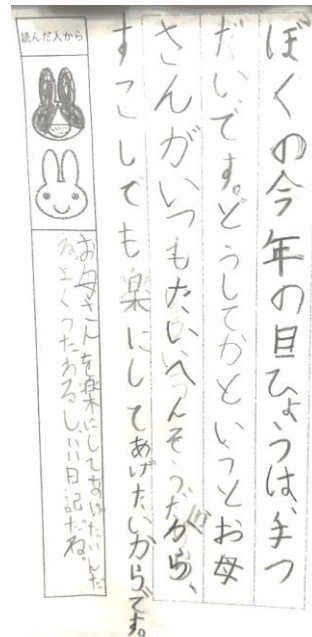 ぼくの今年の目ひょうは、手つ
だいです。どうしてかというとお母
さんがいつもたいへんそうだから、
すこしでも楽にしてあげたいからです。
読んだ人から
お母さんを楽にしてあげたいんだ
ね。よくつたわるし、いい日記だね。